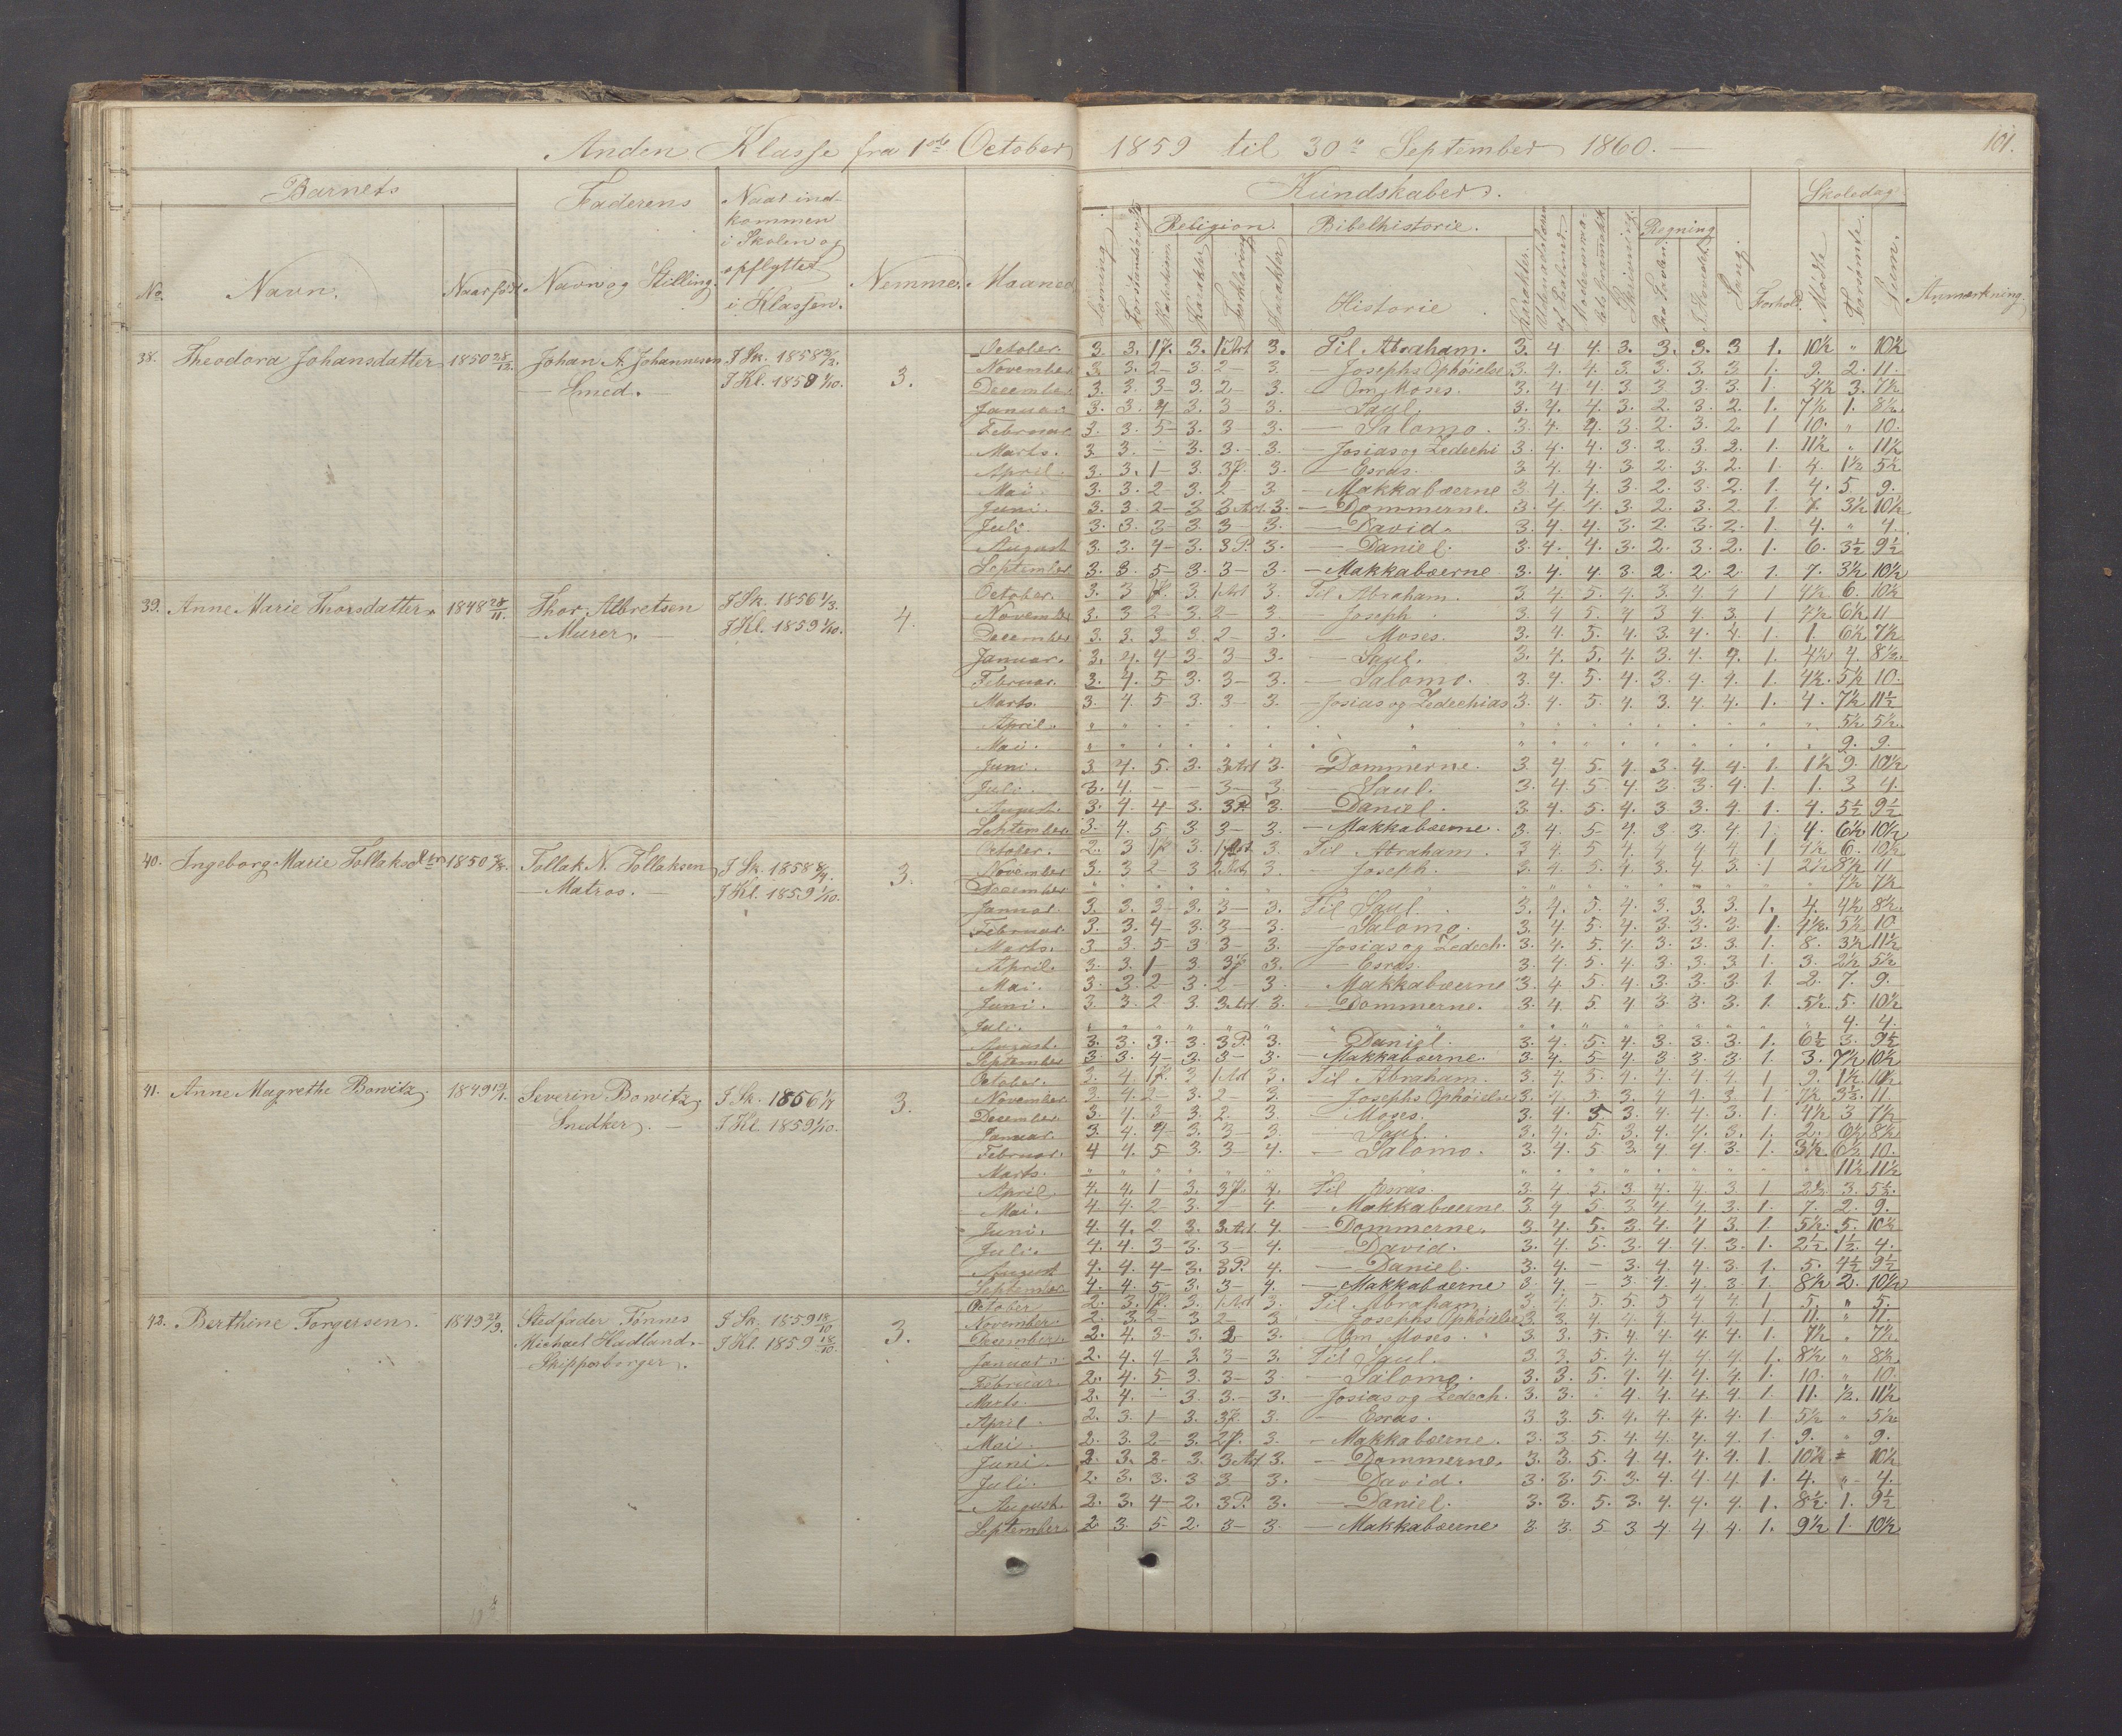 Anden Klasse fra 1ste October 1859 til 30te September 1860. 101.
Barnets Faderens Naar ind-
kommen
i Skolen og
opflyttet
i Klassen.
No. Navn. Naar född Navn og Stilling. Nemme. Maaned
Kundskaber. Skoledage
Læsning Religion. Bibelhistorie. Regning Sang.
Karakter Forklaring Karakter Historie Karakter. Forhold. Mødte Forsømte. Sum. Anmærkning.
38. Theodora Johansdatter 1850 28/12. Johan A. Johannesen I Sk. 1858
— Smed. — I Kl. 1859 1/10. 3.
October. 3. 3. 1 P. 3. 1 Art 3. Til Abraham. 3. 4 4. 3. 3. 3. 3 1. 10½ " 10½
November 3 3. 2 — 3. 2 — 3. — Josephs Ophøielse 3. 4. 4. 3. 3. 3. 3 1. 9. 2. 11.
December 3. 3. 3 — 3. 2 — 3. — Om Moses. 3. 4 4 3 3 3. 3. 1. 4½ 3. 7½
Januar. 3. 3. 4 3. 3 — 3. — Saul. 3. 4. 4. 3. 2. 3. 2. 1. 7½ 1. 8½
Februar 3. 3. 5 — 3. 3 — 3. — Salomo. 3. 4. 4. 3. 2. 3. 2. 1 10. " 10.
Marts. 3. 3. — 3. 3. — 3. — Josias og Zedechi 3. 4. 4. 3. 2 3. 2. 1. 11½ " 11½
April. 3. 3. 1 — 3. 3 P. 3. — Esras. 3. 4. 4. 3. 2. 3. 2. 1. 4. 1½ 5½
Mai. 3. 3. 2 — 3. 2 — 3. — Makkabæerne 3. 4. 4. 3. 2. 3. 2. 1. 4. 5. 9.
Juni. 3. 3. 2 — 3. 3 Art 3. — Dommerne. 3. 4. 4. 3. 2. 3. 2 1. 7. 3½ 10½
Juli. 3. 3. 3 — 3. 3 — 3. — David. 3. 4. 4. 3. 2. 3. 2. 1. 4. " 4.
August 3. 3. 4 — 3. 3 P. 3. — Daniel. 3. 4. 4. 3. 2. 3. 2. 1. 6. 3½ 9½
September 3. 3. 5 — 3. 3 — 3. — Makkabæerne 3. 4. 4. 3. 2. 2. 2. 1. 7. 3½ 10½
39. Anne Marie Thorsdatter. 1848 28/11. Thor Albretsen I Sk. 1856 1/3.
— Murer. — I Kl. 1859 1/10. 4.
October. 3. 3 1 P. 3. 1 Art 3. Til Abraham. 3. 4 5. 4. 3. 4. 4 1 4½ 6. 10½
November 3. 3 2 — 3. 2 — 3 — Joseph. 3. 4 5. 4 3 4. 3. 1 4½ 6½ 11
December 3. 3. 3 — 3. 2 — 3. — Moses. 3. 4. 5. 4. 3. 4. 4. 1. 1. 6½ 7½
Januar. 3. 4. 4 — 3. 3 — 3. — Saul. 3. 4. 5. 4. 3. 4. 4. 1. 4½ 4. 8½
Februar. 3. 4. 5 3. 3 — 3. — Salomo. 3. 4. 5. 4. 3. 4. 4. 1. 4½. 5½ 10.
Marts. 3. 4. 5 — 3. 3 — 3. — Josias og Zedechias 3. 4. 5. 4. 3. 4. 4. 1. 4. 7½ 11½
April. " " " 5½ 5½
Mai. " " " 9. 9.
Juni. 3. 4. 5. 3. 3 Art 3. — Dommerne. 3. 4. 5. 4. 3. 4. 4. 1. 1½ 9. 10½
Juli. 3. 4. — — 3 — 3. — Saul. 3. 4. 5. 4. 3. 3. 4. 1. 1. 3 4.
August. 3. 4. 4 3. 3 P. 3. — Daniel. 3. 4. 5. 4. 3. 3. 4. 1. 4. 5½ 9½
September. 3. 4. 5 3. 3 — 3. — Makkabæerne. 3. 4. 5 4. 3 3. 4. 1. 4. 6½ 10½
40. Ingeborg Marie Tollaksdtr 1850 Tollak N. Tollaksen I Sk. 1858
— Matros. — I Kl. 1859 1/10. 3.
October. 2. 3 1 P. 3. 1 Art. 3 Til Abraham. 3 4 5. 4. 4 4 4 1 4½ 6. 10½
November 3. 3 2 — 3 2 Art 3. — Joseph. 3. 4. 5. 4. 3. 4. 3. 1 2½ 8½ 11
December " " " 7½ 7½
Januar. 3. 3. 3 — 3. 3 — 3. Til Saul. 3. 4. 5. 4. 3. 3. 3 1. 4. 4½ 8½
Februar. 3. 3. 4 — 3. 3 — 3. — Salomo. 3. 4. 5. 4. 3. 3. 3. 1. 4½. 5½ 10
Marts. 3 3. 5 — 3. 3 — 3. — Josias og Zedech. 3. 4. 5. 4. 3. 3. 3. 1. 8. 3½ 11½
April. 3. 3. 1 — 3. 3 P 3. — Esras. 3. 4. 5. 4. 3. 3. 3 1. 3. 2½ 5½
Mai. 3. 3. 2 — 3. 2 — 3. — Makkabæerne 3. 4. 5. 4. 3. 3. 3. 1. 2. 7. 9.
Juni. 3. 3. 2 3. 3 Art 3. — Dommerne. 3. 4. 5. 4. 3. 3. 3. 1. 5½. 5. 10½
Juli. " " " 4. 4.
August. 3. 3. 3. 3. 3 P. 3. — Daniel. 3. 4. 5. 4. 3. 3. 3. 1. 6½ 3. 9½
September 3. 3. 4 — 3. 3 — 3. — Makkabæerne. 3. 4. 5 — 4. 3. 3. 3. 1. 3. 7½ 10½
41. Anne Magrethe Bowitz. 1849 Severin Bowitz, I Sk. 1856
— Snedker. — I Kl. 1859 1/10. 3.
October. 3. 4. 1 P. 3 1 Art 3. Til Abraham. 3. 4. 5. 4. 4. 4. 4 1 9. 1½. 10½
November 3. 4. 2 — 3. 2 — 3. — Josephs Ophøielse 3. 4 3 4 4. 3 1 3½. 11.
December 3. 4. 3 — 3. 2. 3. — Moses. 3. 4. 5 3. 4. 4. 3. 1. 4½ 3. 7½
Januar. 3. 4. 4 — 3. 3 — 3. — Saul. 3. 4. 5. 3. 4. 4. 3. 1. 2. 6½ 8½
Februar. 4 4. 5 3. 3 — 4. — Salomo. 3. 4. 5 3. 4. 4. 3. 1. 3½. 6½ 10.
Marts. " " " 11½ 11½
April. 4. 4. 1 — 3. 3 P. 4. Til Esras. 3. 4. 5. 3. 4. 4. 3. 1 2½. 3. 5½.
Mai. 4. 4. 2 — 3. 2 — 4. — Makkabæerne 3. 4. 5. 3. 4. 4. 3. 1. 7. 2. 9.
Juni. 4. 4. 2 3. 3 Art 4. — Dommerne. 3. 4. 5. 3. 4. 4. 3. 1. 5½. 5. 10½
Juli. 4. 4. 3 — 3. 3 — 4. — David. 3. 4. 5. 3. 4. 4. 3. 1. 2½. 1½. 4.
August 4. 4. 4 — 3. 3 P. 4. — Daniel. 3. 4. — 3. 4. 4. 3. 1. 5. 4½ 9½
September 4. 4. 5 — 3. 3 — 4. — Makkabæerne 3. 4 — 3 4. 4. 3. 1 8½ 2. 10½
42. Berthine Torgersen. 1849 Stedfader Tønnes I Sk. 1859 18/10
Michael Hadland. — I Kl. 1859 18/10. 3.
— Skipperborger.
October 2. 3. 1 P. 3. 1 Art 3. Til Abraham. 3. 4. 5. 5. 5 4 4 1 5. " 5.
November. 2. 3. 2 — 3 2 — 3. — Josephs Ophøielse 3. 3. 4. 4. 4. 4. 4. 1. 11. " 11.
December. 2. 4. 3 — 3. 2 — 3. — Om Moses. 3. 3. 5. 4. 4. 4. 4. 1. 7½ " 7½
Januar. 2. 4. 4 — 3. 3 — 3. Til Saul. 3. 3. 5. 4. 4. 4. 4 1. 8½ " 8½
Februar. 2. 4. 5 — 3. 3 — 3 — Salomo. 3. 3. 5. 4. 4. 4. 4. 1. 10. " 10.
Marts. 2. 4. — 3. 3. — 3. — Josias og Zedech. 3. 3. 4. 4. 4. 4. 1 11. ½. 11½
April. 2. 3. 1 — 3. 3 P. 3. — Esras. 3. 3. 5. 4. 4. 4. 4. 1 5½ " 5½
Mai. 2. 3. 2 — 3. 2 P. 3. — Makkabæerne. 3. 3. 5. 4. 4. 4. 4. 1. 9. " 9.
Juni. 2. 3. 2 — 3. 3 Art 3. — Dommerne. 3. 3. 5. 4. 4. 4. 4. 1. 10½. 10½
Juli. 2. 3. 3. 3. 3 — 3. — David. 3. 3. 5. 3. 4. 4. 4 1. 4. " 4.
August. 2. 3. 4 — 2. 3 P. 3. — Daniel. 3. 3. 5. 3. 4. 4. 4. 1. 8½. 1. 9½
September 2 3. 5 — 2. 3 — 3. — Makkabæerne 3. 3. 5 3 4 4. 4. 1. 9½ 1. 10½